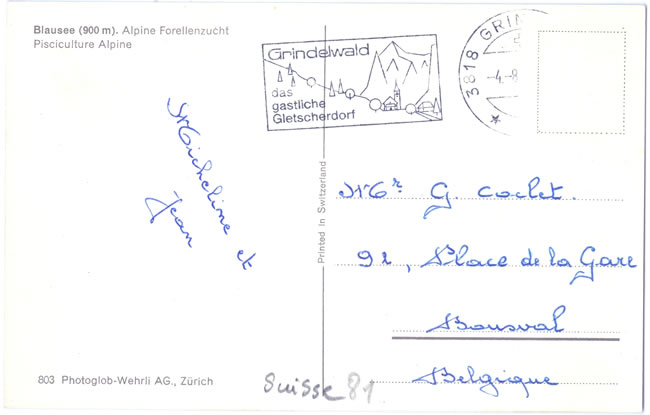 Blausee (900 m). Alpine Forellenzucht
Pisciculture Alpine
Grindelwald
das
gastliche
Gletscherdorf
3818 GRIN
-4.-8
Micheline et
Jean
Printed in Switzerland
Mr G. Coclet.
92, Place de la Gare
Bousval
Belgique
803 Photoglob-Wehrli AG., Zürich
Suisse 81